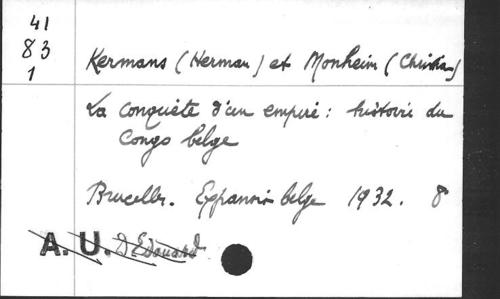 41
83
1
Kermans (Herman) et Monheim (Christian)
La conquête d'un empire : histoire du
Congo belge
Bruxelles. Expansion belge 1932. 8
A. U. D. Edouard